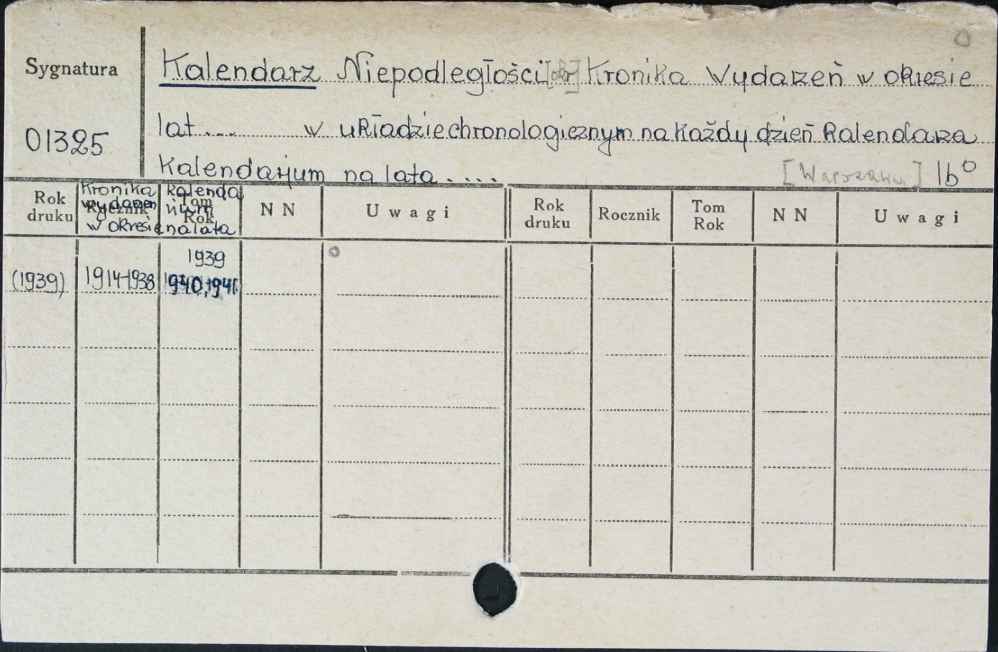 Sygnatura
01325
Kalendarz Niepodległości Kronika Wydarzeń w okresie
lat... w układzie chronologicznym na każdy dzień kalendarza
Kalendarjum na lata.....
[Warszawa] 16°
Rok druku Rocznik Tom Rok NN Uwagi Rok druku Rocznik Tom Rok NN Uwagi
Kronika wydarzeń w okresie
kalendarium na lata
1939
(1939) 1914-1938 1940, 1941